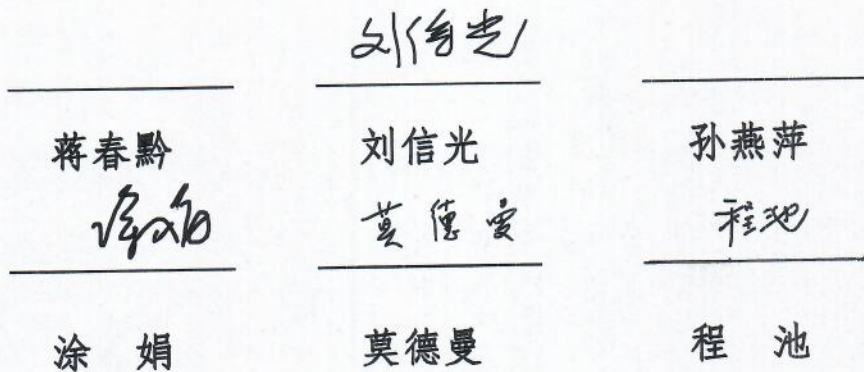 刘信光
蒋春黔 刘信光 孙燕萍
涂娟 莫德曼 程池
涂 娟 莫德曼 程 池